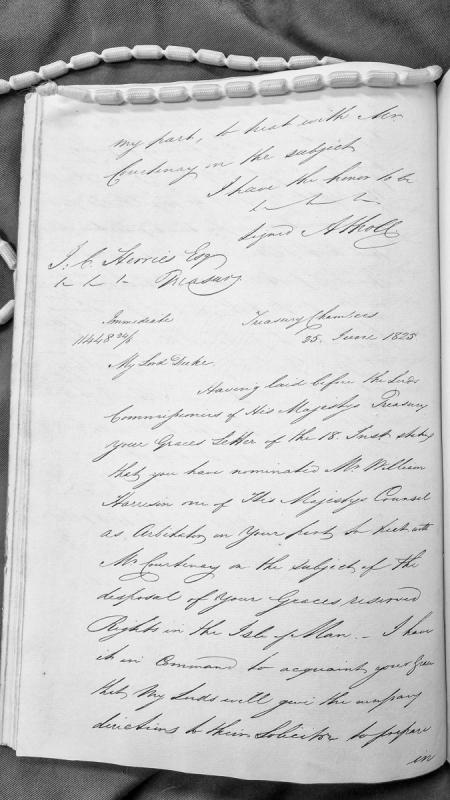 my part, to treat with Mr
Courtenay on the subject
I have the honor to be
Signed Atholl
J. C. Herries Esq
Treasury
Immediate
Treasury Chambers
11448 24/6
25. June 1825
My Lord Duke,
Having laid before the Lords
Commissioners of His Majestys Treasury
your Graces Letter of the 18. Inst stating
that you have nominated Mr. William
Harrison one of His Majestys Counsel
as Arbitrator on Your part to treat with
Mr Courtenay on the subject of the
disposal of Your Graces reserved
Rights in the Isle of Man. - I have
it in Command to acquaint your Grace
that My Lords will give the necessary
directions to their Solicitor to prepare
in